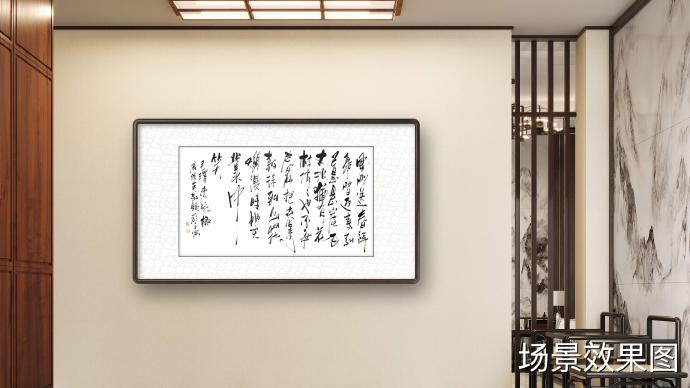 風雨送春歸
飛雪迎春到
已是懸崖百
丈冰猶有花
枝俏俏也不爭
春只把春來報
待到山花
爛漫時她在
叢中
笑
毛澤東詠梅
场景效果图